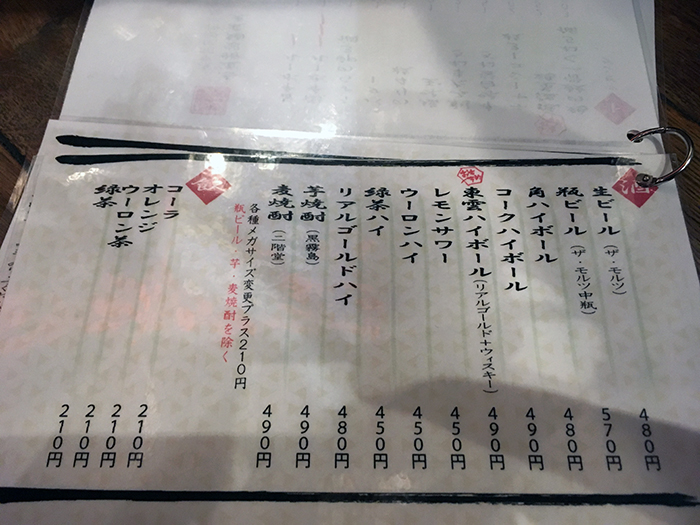 酒
生ビール（ザ・モルツ） 480円
瓶ビール（ザ・モルツ中瓶） 570円
角ハイボール 480円
コークハイボール 490円
東雲ハイボール（リアルゴールド＋ウィスキー） 490円
レモンサワー 450円
ウーロンハイ 450円
緑茶ハイ 450円
リアルゴールドハイ 480円
芋焼酎（黒霧島） 490円
麦焼酎（二階堂） 490円
各種メガサイズ変更プラス210円
瓶ビール・芋・麦焼酎を除く
飲
コーラ 210円
オレンジ 210円
ウーロン茶 210円
緑茶 210円